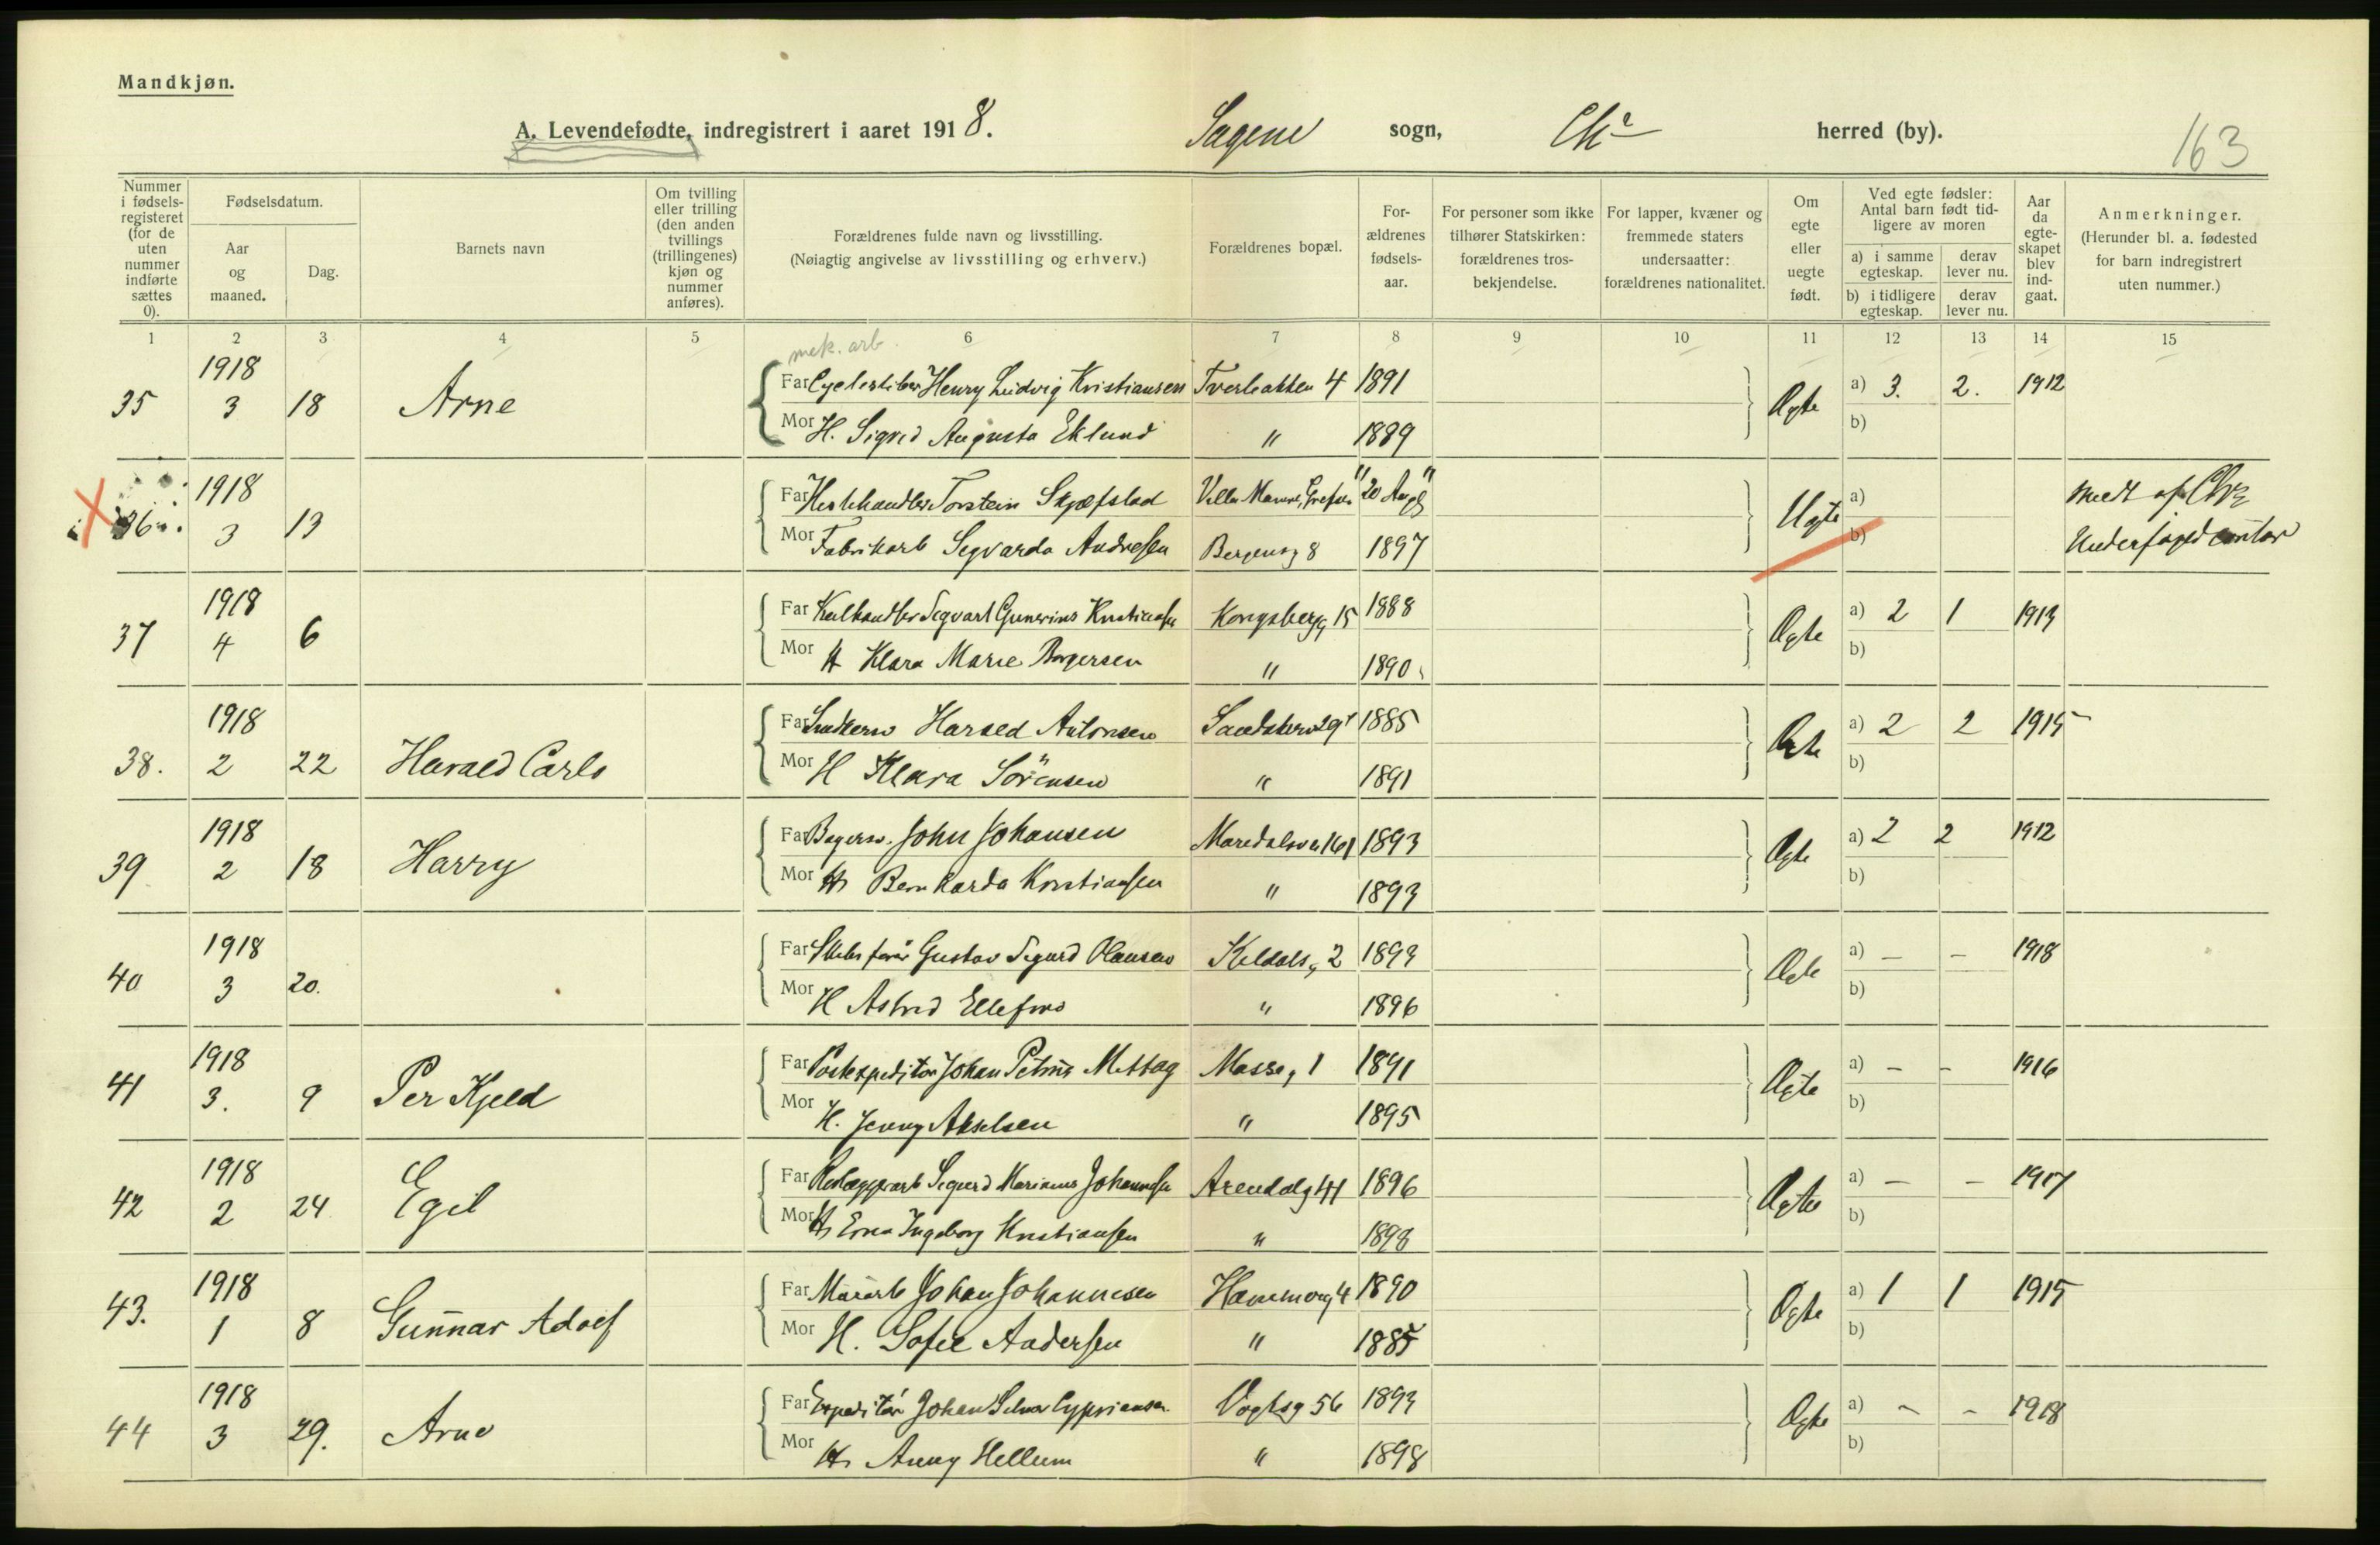 Mandkjøn.
A. Levendefødte, indregistrert i aaret 1918. Sagene sogn, Chr herred (by). 163
Nummer i fødsels-registeret (for de uten nummer indførte sættes 0).
Fødselsdatum.
Aar og maaned.
Dag.
Barnets navn
Om tvilling eller trilling (den anden tvillings (trillingenes) kjøn og nummer anføres).
Forældrenes fulde navn og livsstilling.
(Nøiagtig angivelse av livsstilling og erhverv.)
Forældrenes bopæl.
For-ældrenes fødsels-aar.
For personer som ikke tilhører Statskirken: forældrenes tros-bekjendelse.
For lapper, kvæner og fremmede staters undersaatter: forældrenes nationalitet.
Om egte eller uegte født.
Ved egte fødsler: Antal barn født tid-ligere av moren
a) i samme egteskap.
derav lever nu.
b) i tidligere egteskap.
derav lever nu.
Aar da egte-skapet blev ind-gaat.
Anmerkninger.
(Herunder bl. a. fødested for barn indregistrert uten nummer.)
1 2 3 4 5 6 7 8 9 10 11 12 13 14 15
mek. arb.
35 1918 3 18 Arne Far Henry Ludvig Kristiansen Tverbakken 4 1891 Egte a) 3. 2. 1912
Mor H. Sigrid Augusta Eklund " 1889 b)
36 1918 3 13 Far Hestehandler Torstein Skjæfstad Villa 20 Aug Uegte a)
Mor Fabrikarb Segvarda Andresen Bergensg 8 1897 b)
37 1918 4 6 Far Kulhandler Segvart Gunerius Kristiansen Kongsbergg 15 1888 Egte a) 2 1 1913
Mor H Klara Marie Borgersen " 1890 b)
38. 1918 2 22 Harald Carlo Far Harald Antonsen 1885 Egte a) 2 2 1915
Mor H Klara Sörensen " 1891 b)
39 1918 2 18 Harry Far Bagersv. John Johansen Maridalsv 161 1893 Egte a) 2 2 1912
Mor H Bernharda Kristiansen " 1893 b)
40 1918 3 20. Far Gustav Sigurd Olausen Keldalsg 2 1893 Egte a) — — 1918
Mor H Astrid Ellefsen " 1896 b)
41 1918 3. 9 Per Kjeld Far Postexpeditør Johan Mossg 1 1891 Egte a) — — 1916
Mor H. Jenny Akselsen " 1895 b)
42 1918 2 24 Egil Far Sigurd Marinius Johannesen Arendalg 41 1896 Egte a) — — 1917
Mor H Erna Ingeborg Kristiansen " 1898 b)
43. 1918 1 8 Gunnar Adolf Far Murarb Johan Johannesen 1890 Egte a) 1 1 1915
Mor H. Sofie Andersen " 1885 b)
44 1918 3 29. Arne Far Expeditør Johan Cypriansen Vogtsg 56 1893 Egte a) — — 1918
Mor H Anny Hellum " 1898 b)